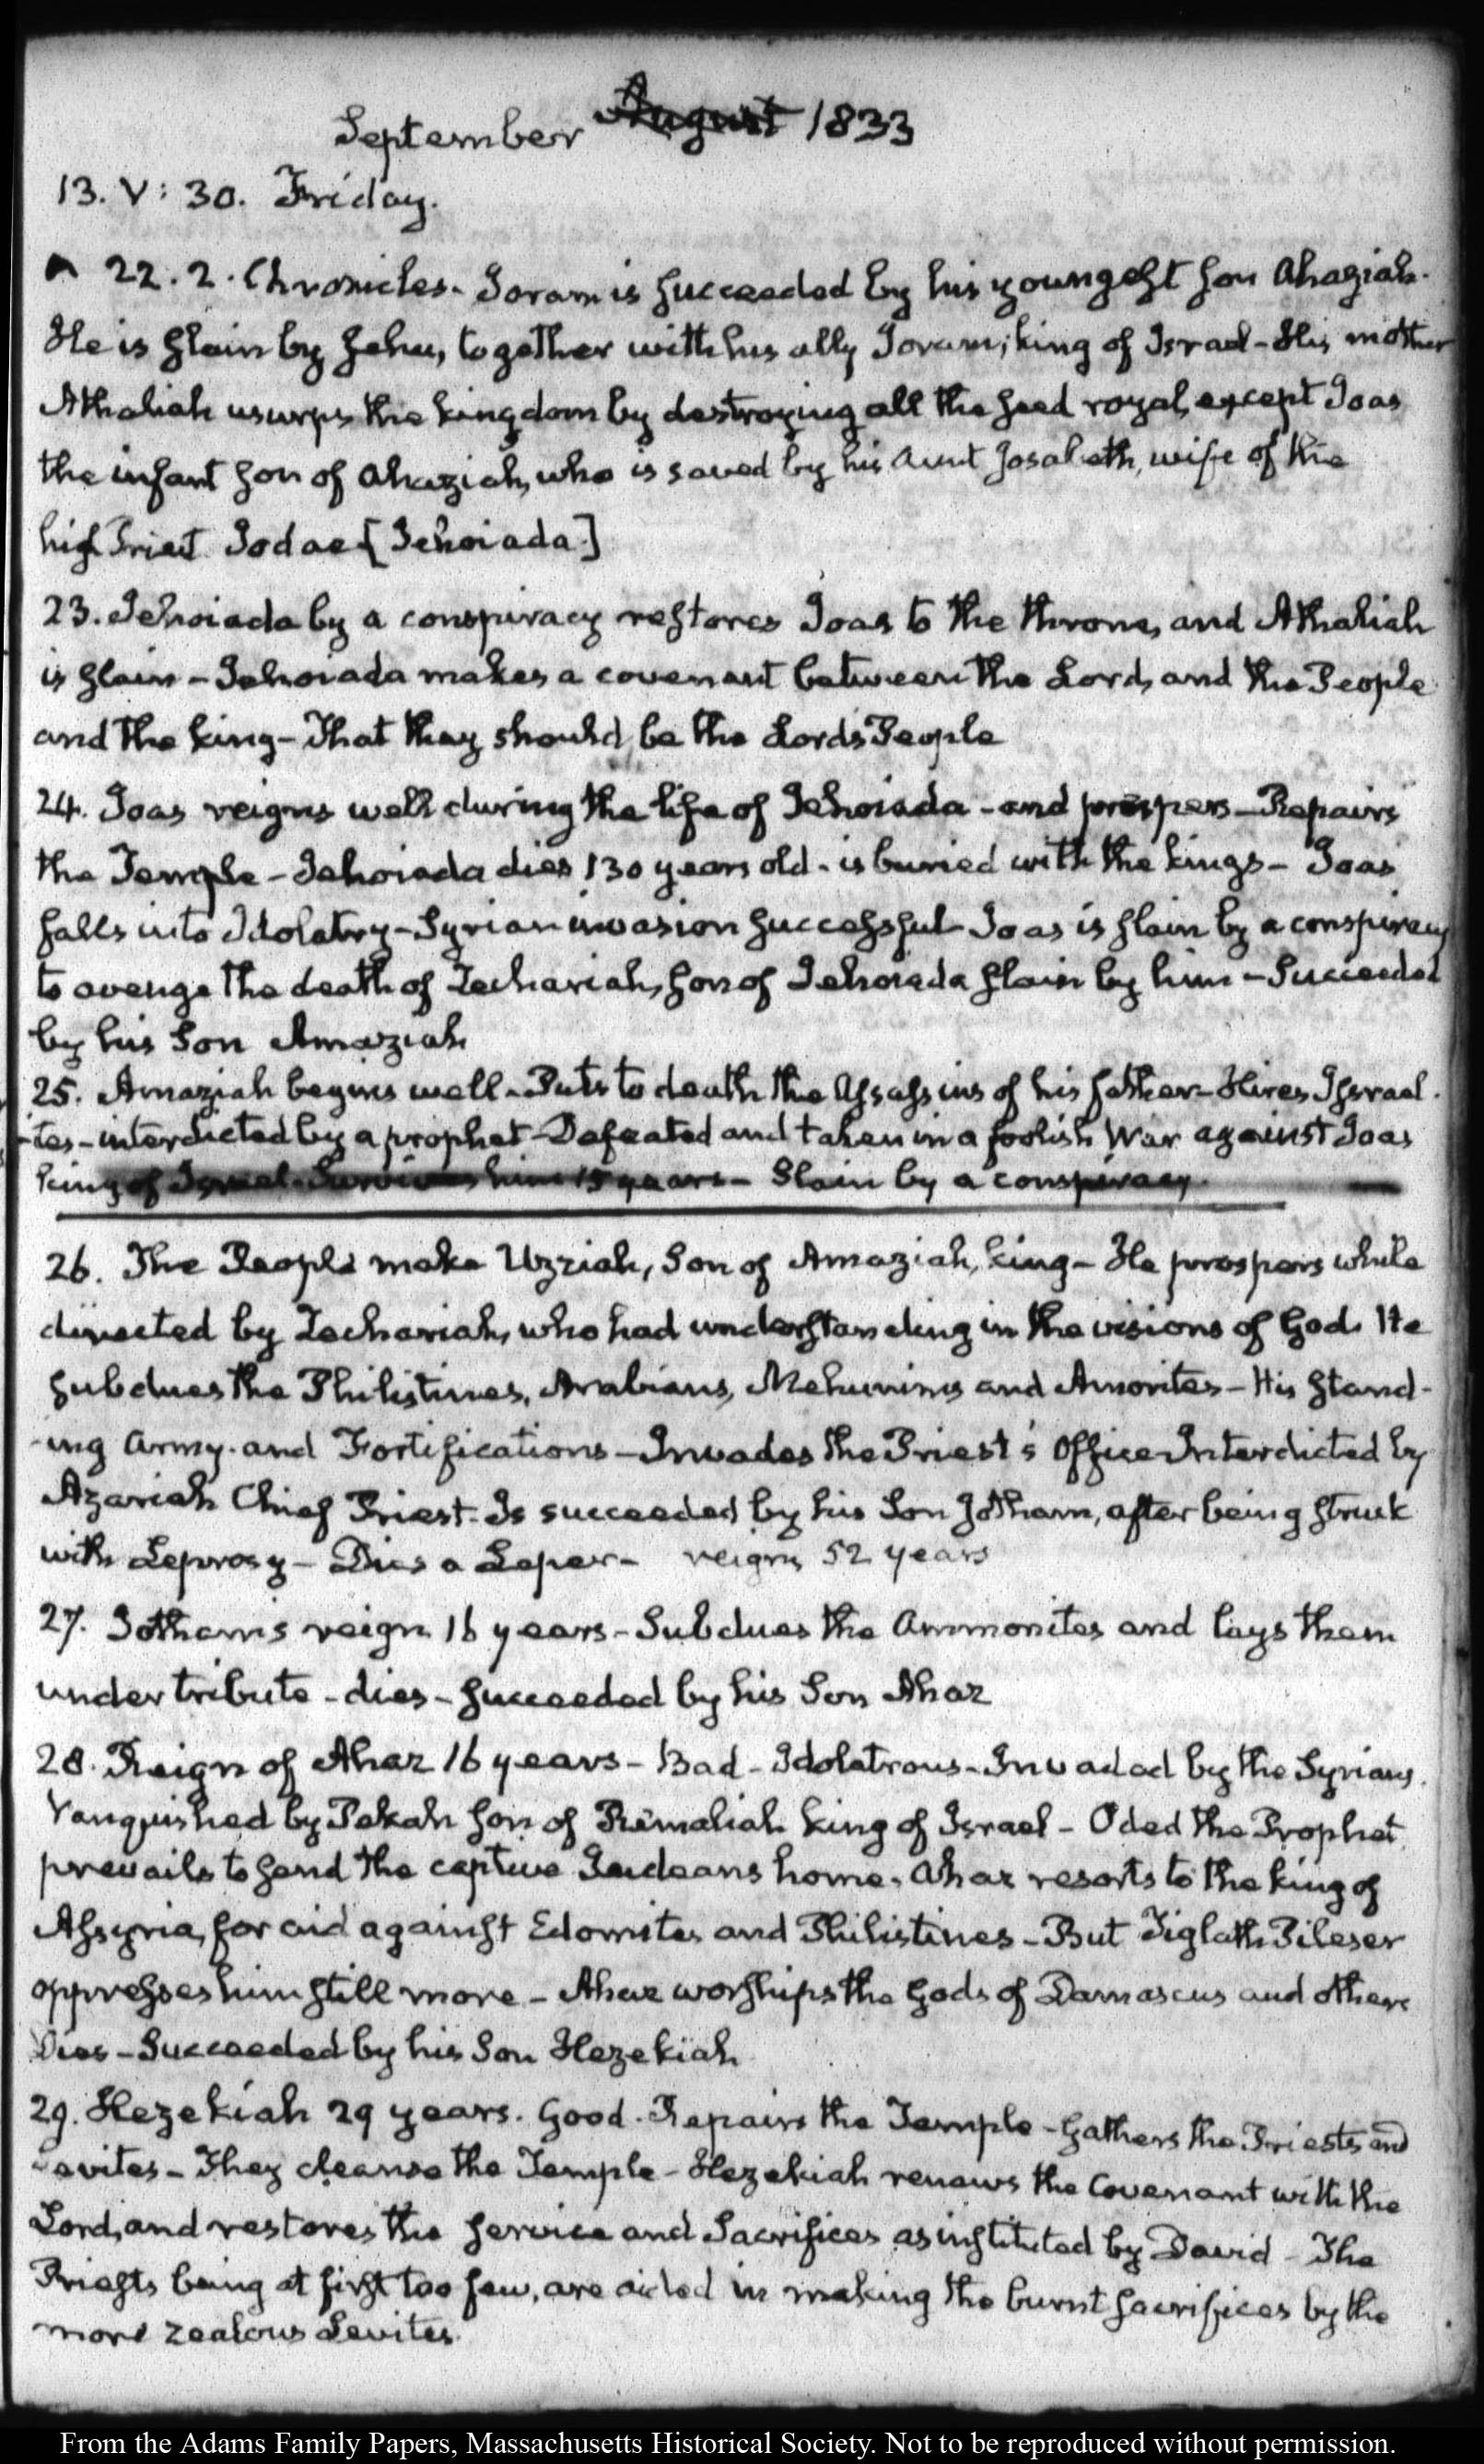 September August 1833
13. V: 30. Friday.
22. 2. Chronicles - Joram is succeeded by his youngest son Ahaziah.
He is slain by Jehu, together with his ally Joram, king of Israel - His mother
Athaliah usurps the kingdom by destroying all the seed royal, except Joas
the infant son of Ahaziah, who is saved by his Aunt Josabeth, wife of the
high Priest Jodae [Jehoiada]
23. Jehoiada by a conspiracy restores Joas to the throne, and Athaliah
is slain - Jehoiada makes a covenant between the Lord, and the People
and the king - That they should be the Lords People
24. Joas reigns well during the life of Jehoiada - and prospers - Repairs
the Temple - Jehoiada dies 130 years old - is buried with the kings - Joas
falls into Idolatry - Syrian invasion successful - Joas is slain by a conspiracy
to avenge the death of Zechariah, son of Jehoiada slain by him - Succeeded
by his Son Amaziah
25. Amaziah begins well - Puts to death the Assassins of his father - Hires Israel
-ites - interdicted by a prophet - Defeated and taken in a foolish War against Joas
king of Israel - Survives him 15 years - Slain by a conspiracy
26. The People make Uzziah, Son of Amaziah, king - He prospers while
directed by Zechariah, who had understanding in the visions of God. He
subdues the Philistines, Arabians, Mehunims and Amonites - His stand-
-ing Army and Fortifications - Invades the Priest's Office Interdicted by
Azariah Chief Priest - Is succeeded by his Son Jotham, after being struck
with Leprosy - Dies a Leper - reigns 52 years
27. Jotham's reign 16 years - Subdues the Ammonites and lays them
under tribute - dies - succeeded by his Son Ahaz
28. Reign of Ahaz 16 years - Bad - Idolatrous - Invaded by the Syrians.
Vanquished by Pekah son of Remaliah king of Israel - Oded the Prophet
prevails to send the captive Judeans home. Ahaz resorts to the king of
Assyria, for aid against Edomites and Philistines - But Tiglath Pileser
oppresses him still more - Ahaz worships the Gods of Damascus and others
Dies - Succeeded by his Son Hezekiah
29. Hezekiah 29 years. Good. Repairs the Temple - Gathers the Priests and
Levites - They cleanse the Temple - Hezekiah renews the Covenant with the
Lord, and restores the service and Sacrifices as instituted by David - The
Priests being at first too few, are aided in making the burnt sacrifices by the
more zealous Levites.
From the Adams Family Papers, Massachusetts Historical Society. Not to be reproduced without permission.